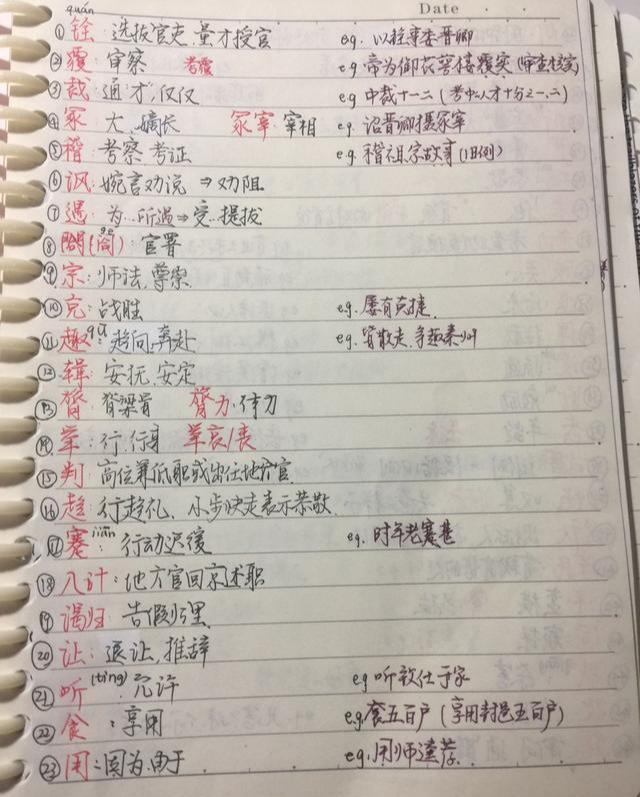 Date
quán
①铨：选拔官吏，量才授官 eg. 以铨事委晋卿
②覆：审察 考覆 eg. 帝为御花萼楼覆实（审查核实）
③裁：通"才"，仅仅 eg. 中裁十一二（考中人才十分之一、二）
④冢 大，嫡长 冢宰：宰相 eg. 诏晋卿摄冢宰
⑤稽：考察，考证 eg. 稽祖宗故事（旧例）
⑥讽：婉言劝说 ⇒劝阻
⑦遇：为…所遇⇒受…提拔
⑧閤（阁）：官署
⑨宗：师法，尊崇
⑩克：战胜 eg. 屡有克捷
⑪趣qū：趋向，奔赴 eg. 皆散走，争趣秦州
⑫辑：安抚，安定
⑬膂：脊梁骨 膂力：体力
⑭举：行，行身 举哀/丧
⑮判：高位兼低职或出任地方官
⑯趋：行趋礼、小步快走表示恭敬
⑰蹇jiǎn：行动迟缓 eg. 时年老蹇甚
⑱入计：地方官回京述职
⑲谒归：告假归里
⑳让：退让，推辞
㉑听(tīng)：允许 eg. 听致仕于家
㉒食：享用 eg. 食五百户（享用封邑五百户）
㉓用：因为，由于 eg. 用师逵荐